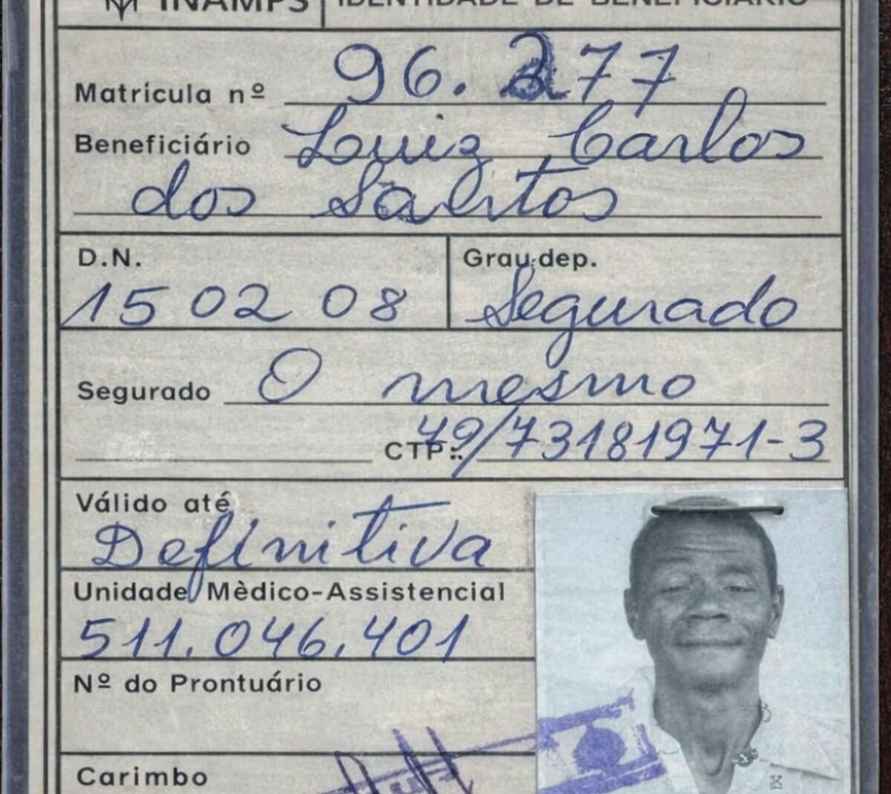 INAMPS IDENTIDADE DE BENEFICIÁRIO
Matrícula nº 96.277
Beneficiário Luiz Carlos
dos Santos
D.N. Grau dep.
15 02 08 Segurado
Segurado O mesmo
CTP.: 49/73181971-3
Válido até
Definitiva
Unidade Mèdico-Assistencial
511.046.401
Nº do Prontuário
Carimbo